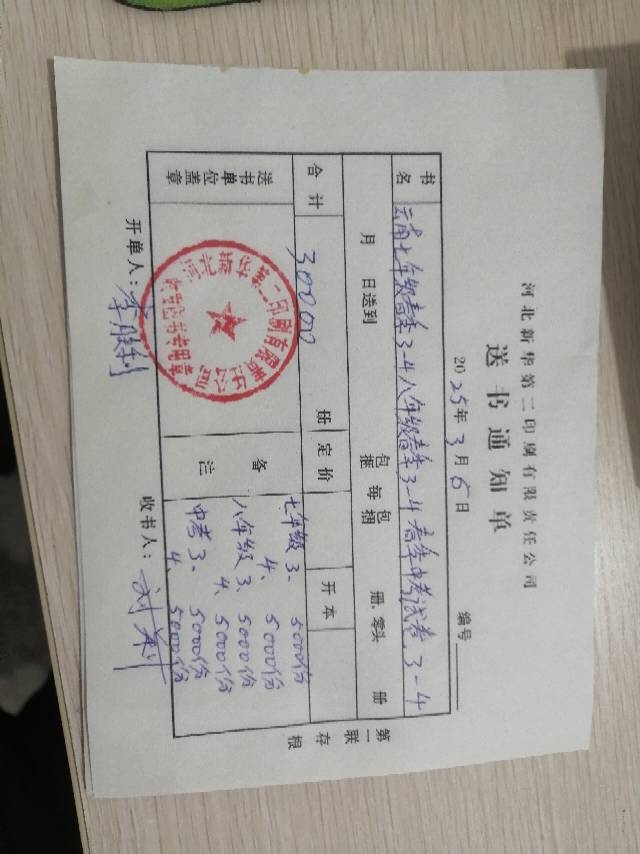 河北新华第二印刷有限责任公司
送书通知单
2025年3月6日
编号
书名 云南七年级春季3-4八年级春季3-4春季中考试卷3-4
月 日送到 包捆 每包捆 册、零头 册
合计 30000 册 定价 开本
送书单位盖章
备注
七年级3、5000份
4、5000份
八年级3、5000份
4、5000份
中考3、5000份
4、5000份
第一联 存根
开单人：李胜利
收书人：刘